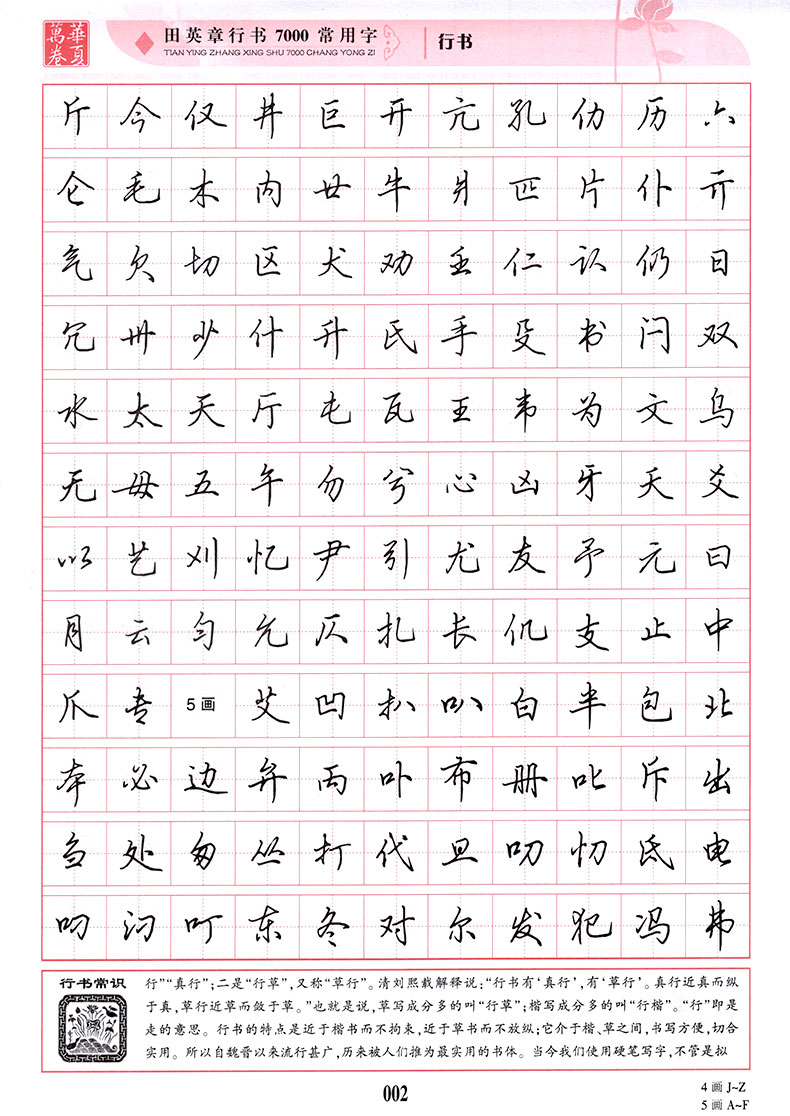 華夏
萬卷
田英章行书7000常用字
TIAN YING ZHANG XING SHU 7000 CHANG YONG ZI
行书
斤今仅井巨开亢孔仂历六
仑毛木内廿牛爿匹片仆亓
气欠切区犬劝壬仁认仍日
冗卅少什升氏手殳书闩双
水太天厅屯瓦王韦为文乌
无毋五午勿兮心凶牙夭爻
以艺刈忆尹引尤友予元曰
月云匀允仄扎长仉支止中
爪专5画艾凹扒叭白半包北
本必边弁丙卟布册叱斥出
刍处匆丛打代旦叨忉氐电
叼汈叮东冬对尔发犯冯弗
行书常识
行”“真行”;二是“行草”,又称“草行”。清刘熙载解释说:“行书有‘真行’,有‘草行’。真行近真而纵
于真,草行近草而敛于草。”也就是说,草写成分多的叫“行草”;楷写成分多的叫“行楷”。“行”即是
走的意思。行书的特点是近于楷书而不拘束,近于草书而不放纵;它介于楷、草之间,书写方便,切合
实用。所以自魏晋以来流行甚广,历来被人们推为最实用的书体。当今我们使用硬笔写字,不管是拟
002
4画J~Z
5画A~F